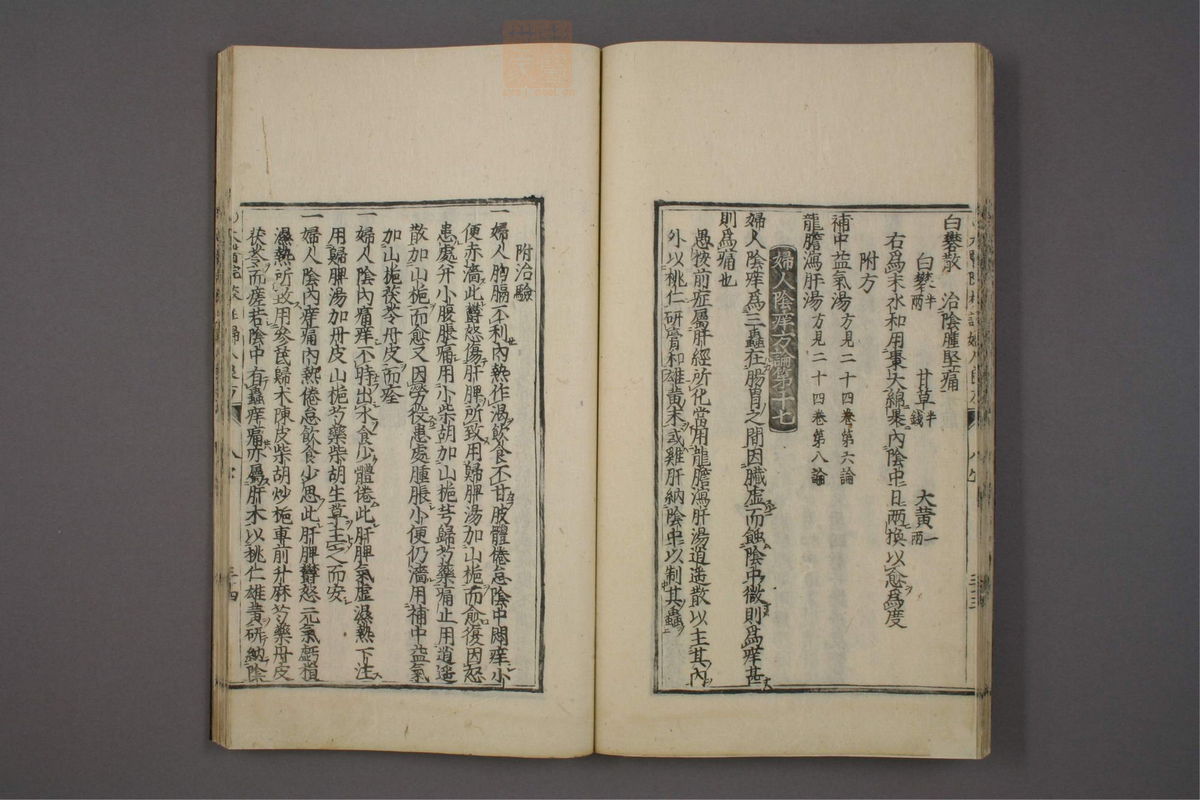 白礬散　治陰腫堅痛
白礬半兩　甘草半錢　大黃一兩
右爲末水和用棗大綿裹內陰中日兩換以愈爲度
附方
補中益氣湯方見二十四卷第六論
龍膽瀉肝湯方見二十四卷第八論
婦人陰痒方論第十七
婦人陰痒爲三蟲在腸胃之間因臟虛而蝕陰中微則爲痒甚
則爲痛也
愚按前症屬肝經所化當用龍膽瀉肝湯逍遙散以主其內
外以桃仁研膏和雄黃末或雞肝納陰中以制其蟲
三十三
附治驗
一婦人胸膈不利內熱作渴飲食不甘肢體倦怠陰中悶痒小
便赤濇此鬱怒傷肝脾所致用歸脾湯加山梔而愈復因怒
患處幷小腹脹痛用小柴胡加山梔芎歸芍藥痛止用逍遙
散加山梔而愈又因勞役患處腫脹小便仍濇用補中益氣
加山梔茯苓丹皮而痊
一婦人陰內痛痒不時出水食少體倦此肝脾氣虛濕熱下注
用歸脾湯加丹皮山梔芍藥柴胡生草主之而安
一婦人陰內痒痛內熱倦怠飲食少思此肝脾鬱怒元氣虧損
濕熱所致用參芪歸朮陳皮柴胡炒梔車前升麻芍藥丹皮
茯苓而瘥若陰中有蟲痒痛亦屬肝木以桃仁雄黃研納陰
三十四